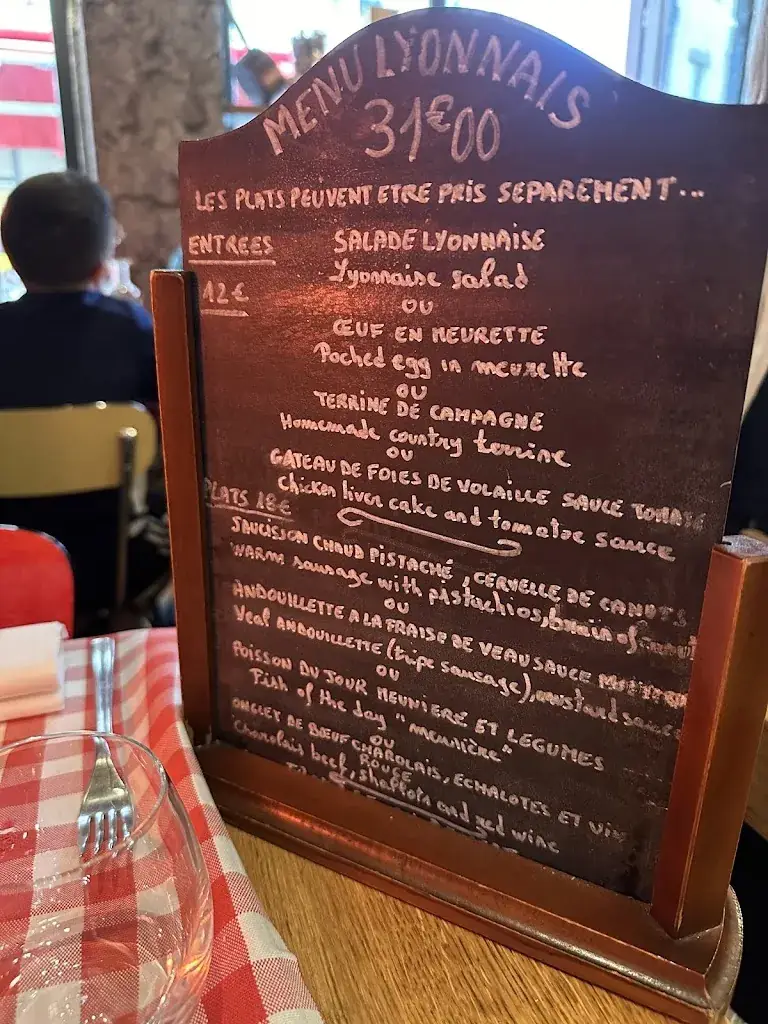 MENU LYONNAIS
31€00
LES PLATS PEUVENT ETRE PRIS SEPAREMENT...
ENTREES
12€
SALADE LYONNAISE
Lyonnaise salad
OU
ŒUF EN MEURETTE
Poched egg in meurette
OU
TERRINE DE CAMPAGNE
Homemade country terrine
OU
GATEAU DE FOIES DE VOLAILLE SAUCE TOMATE
Chicken liver cake and tomatoe sauce
PLATS 18€
SAUCISSON CHAUD PISTACHÉ, CERVELLE DE CANUTS
Warm sausage with pistachios, brain of
OU
ANDOUILLETTE A LA FRAISE DE VEAU SAUCE
Veal ANDOUILLETTE (tripe sausage), mustard sauce
OU
POISSON DU JOUR MEUNIERE ET LEGUMES
Fish of the day "meunière"
OU
ONGLET DE BŒUF CHAROLAIS, ECHALOTES ET VIN
ROUGE
Charolais beef, shallots and red wine